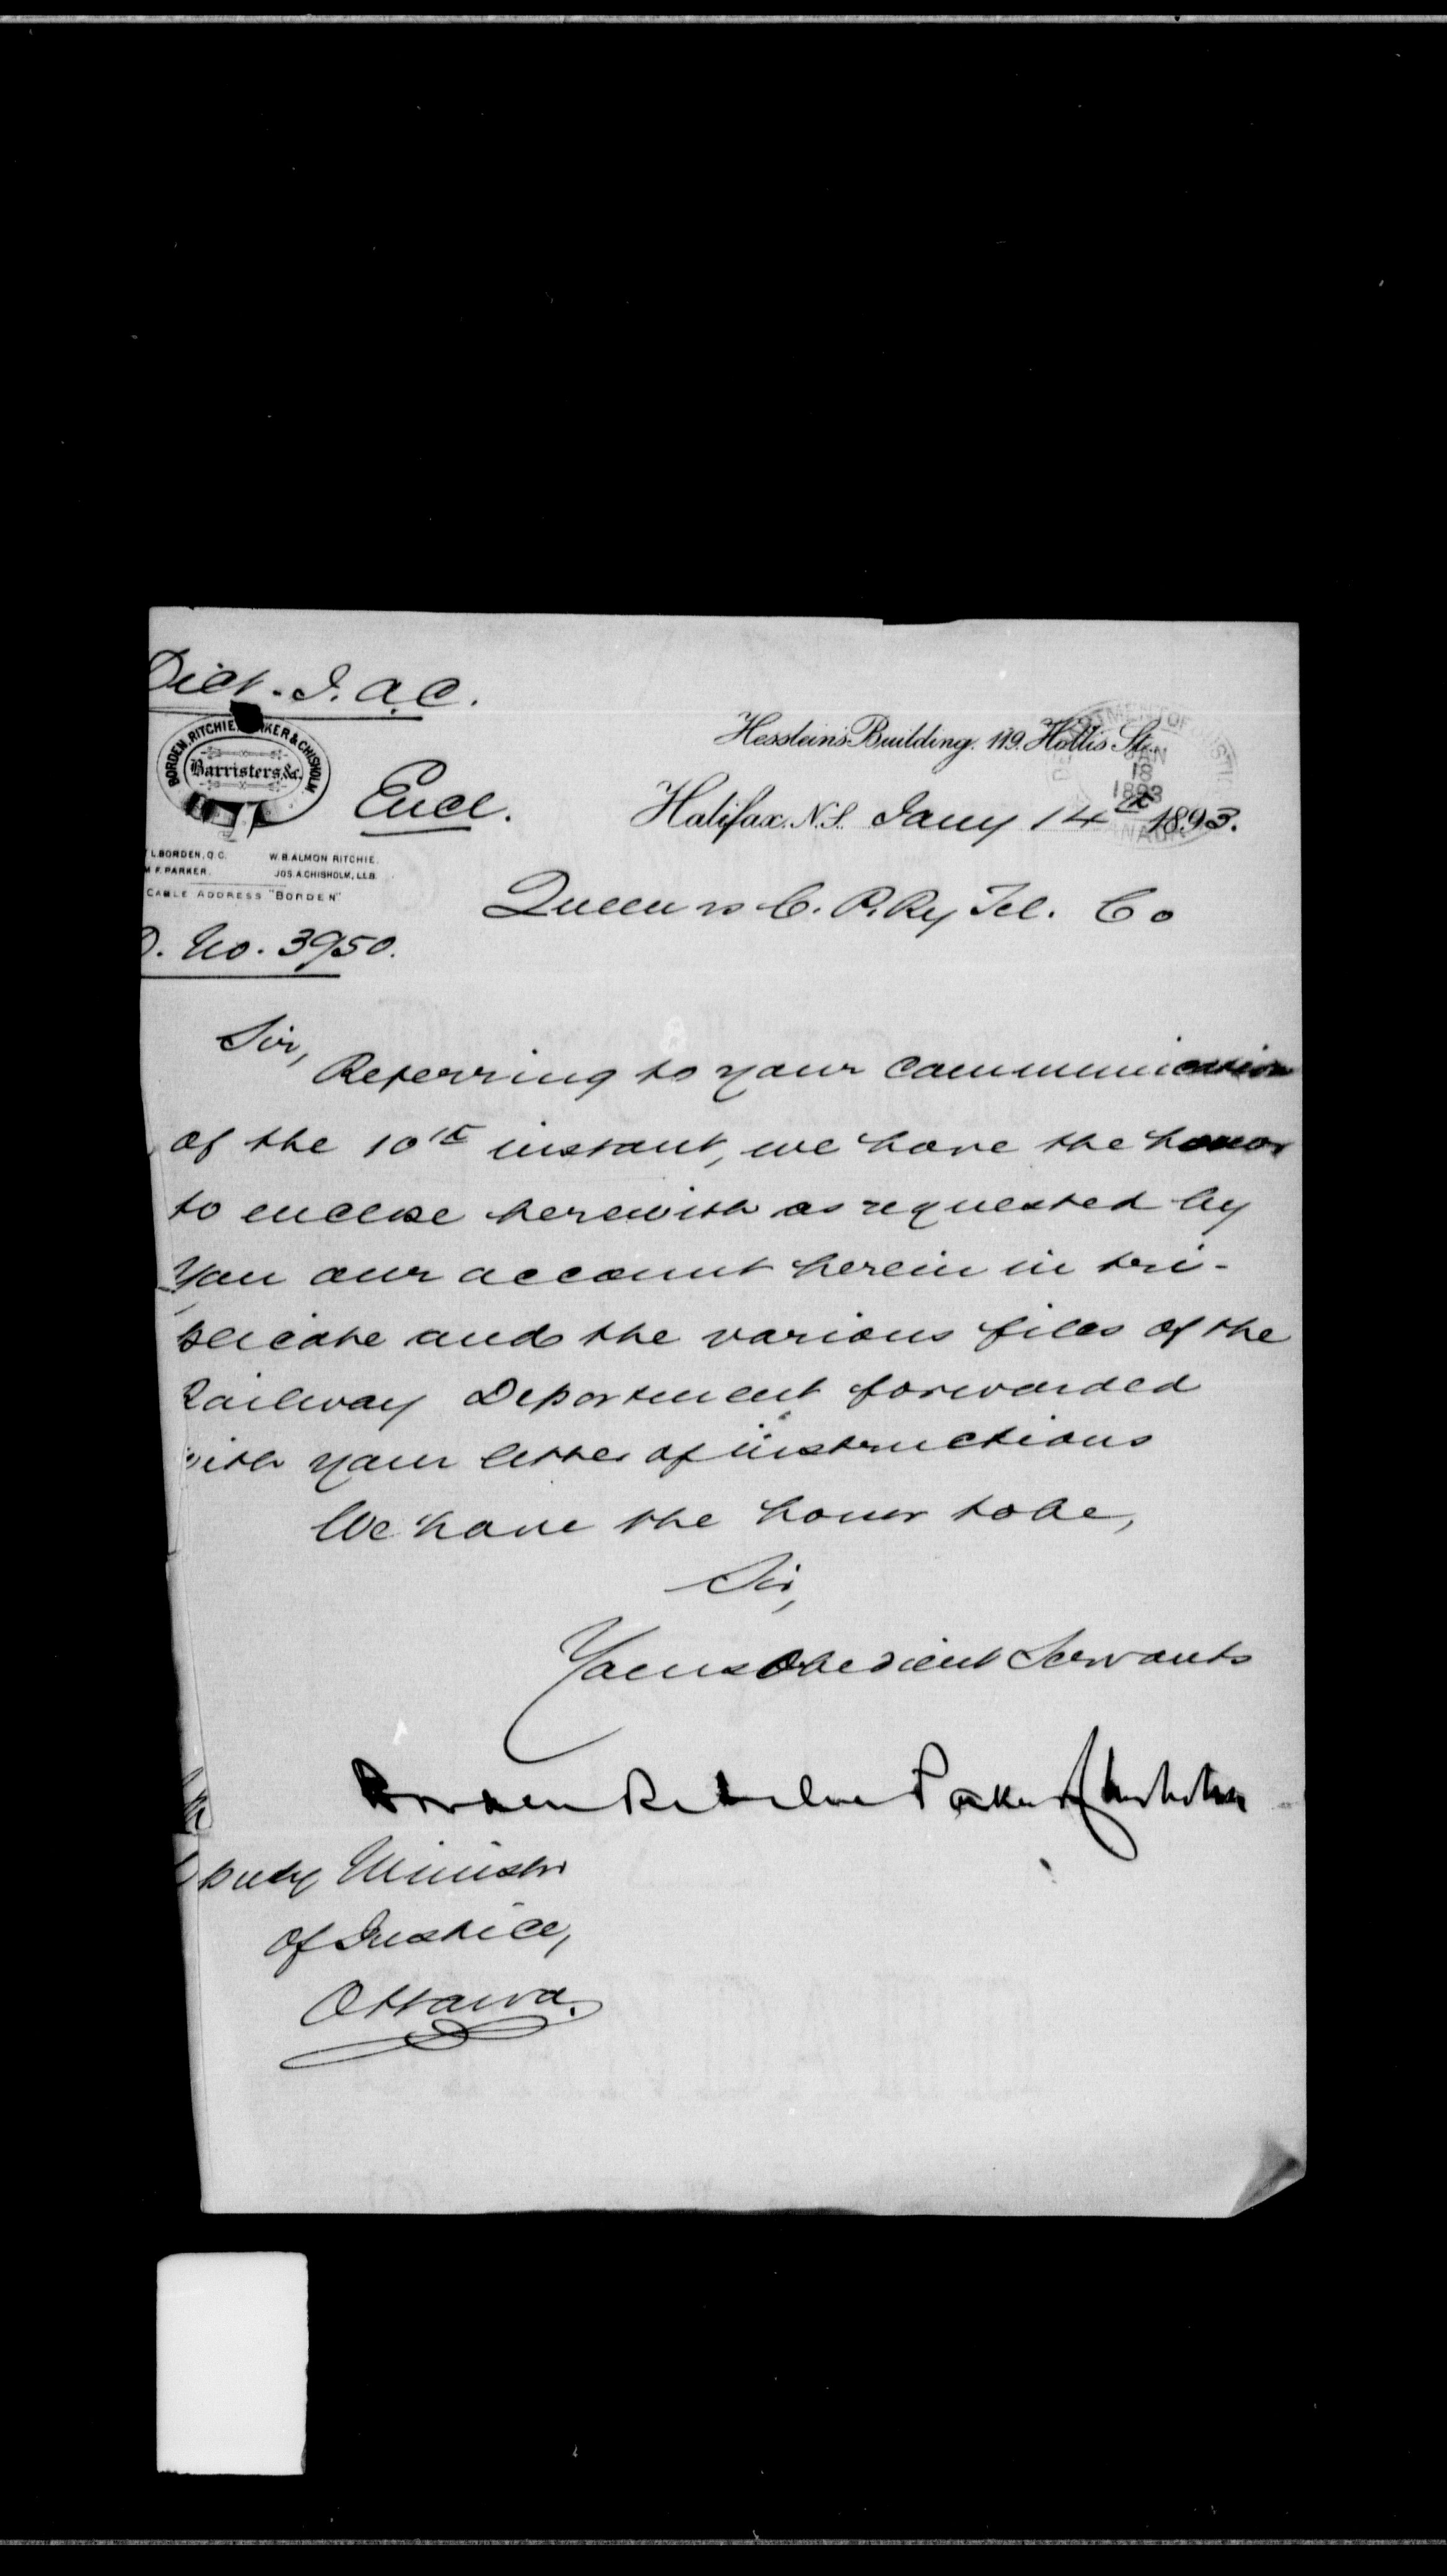 Dict. J.A.C.
BORDEN, RITCHIE, KER & CHISHOLM
Barristers, &c.
Hesslein's Building. 119. Hollis St.
DEPARTMENT OF JUSTICE
JAN
18
1893
CANADA
Encl.
Halifax. N.S. Jany 14th 1893.
L. BORDEN, Q.C. W. B. ALMON RITCHIE.
M F. PARKER. JOS. A. CHISHOLM, LL.B.
CABLE ADDRESS "BORDEN"
Queen vs C. P. Ry Tel. Co
D. No. 3950.
Sir,
Referring to your communication
of the 10th instant, we have the honor
to enclose herewith as requested by
you our account herein in tri-
plicate and the various files of the
Railway Department forwarded
with your letter of instructions
We have the honor to be,
Sir,
Yours Obedient Servants
Borden Ritchie Parker & Chisholm
Deputy Minister
of Justice,
Ottawa.